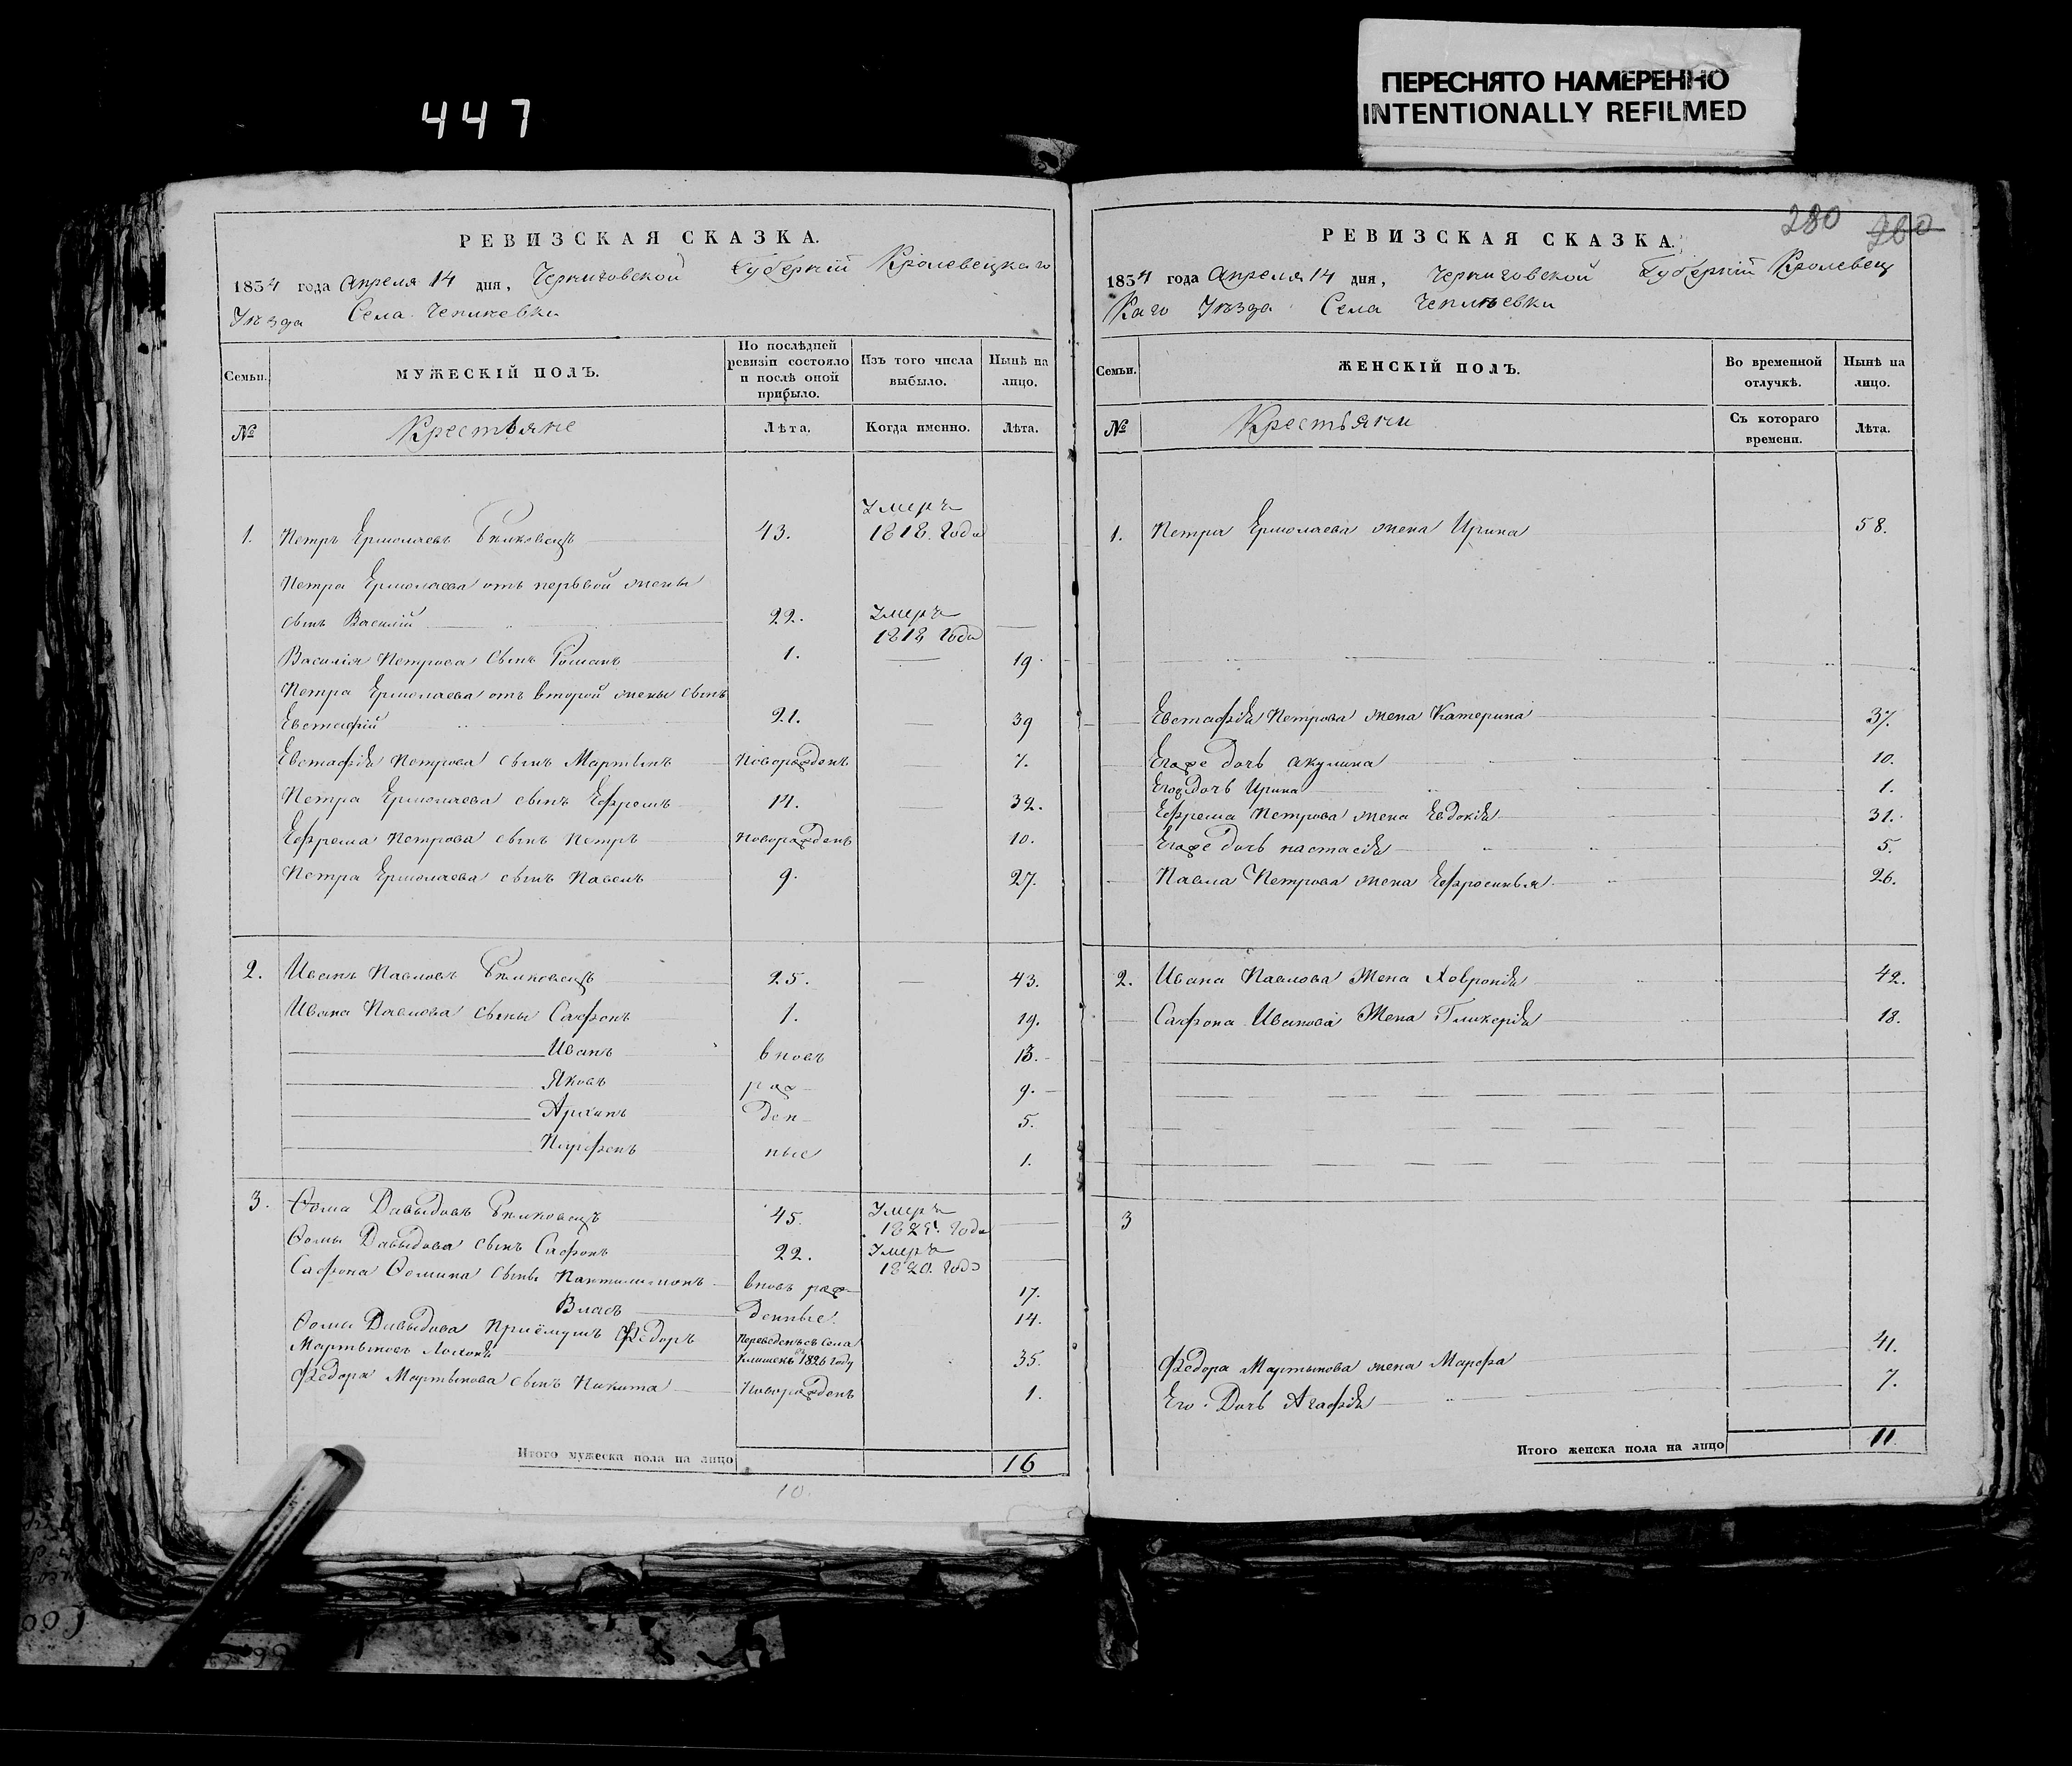 447
ПЕРЕСНЯТО НАМЕРЕННО
INTENTIONALLY REFILMED
РЕВИЗСКАЯ СКАЗКА.
1834 года Апреля 14 дня, Черниговской Губерніи Кролевецкаго
Уѣзда Села Чепиневки
Семьи. МУЖЕСКІЙ ПОЛЪ. По послѣдней ревизіи состояло и послѣ оной прибыло. Изъ того числа выбыло. Нынѣ на лицо.
№ Крестьяне Лѣта. Когда именно. Лѣта.
1. Петръ Ермолаевъ 43. Умеръ 1818. Года
Петра Ермолаева отъ первой жены
сынъ Василій 22. Умеръ 1818 Года
Василія Петрова Сынъ Романъ 1. 19.
Петра Ермолаева отъ второй жены сынъ
Евстафій 21. 39
Евстафія Петрова сынъ Мартынъ Новорожденъ 7.
Петра Ермолаева сынъ Ефремъ 14. 32.
Ефрема Петрова сынъ Петръ Новорожденъ 10.
Петра Ермолаева сынъ Павелъ 9. 27.
2. Иванъ Павловъ 25. 43.
Ивана Павлова сыны Сафонъ 1. 19.
Иванъ вновъ 13.
Яковъ рож 9.
Архипъ ден 5.
Парфенъ ные 1.
3. Ѳома Давыдовъ 45. Умеръ Года
Ѳомы Давыдова сынъ Сафонъ 22. Умеръ 1820. Года
Сафона Ѳомина сыны Пантилимонъ вновъ рож 17.
Власъ денные. 14.
Ѳомы Давыдова Приёмышъ Ѳедоръ Переведенъ съ Села
Мартыновъ 1826 году 35.
Ѳедора Мартынова сынъ Никита Новорожденъ 1.
Итого мужеска пола на лицо 16
10.
280 260
РЕВИЗСКАЯ СКАЗКА.
1834 года Апреля 14 дня, Черниговской Губерніи Кролевец
Каго Уѣзда Села Чепинѣевки
Семьи. ЖЕНСКІЙ ПОЛЪ. Во временной отлучкѣ. Нынѣ на лицо.
№ Крестьяни Съ котораго времени. Лѣта.
1. Петра Ермолаева жена Ирина 58.
Евстафія Петрова жена Катерина 37.
Егоже дочь Акулина 10.
Егож Дочь Ирина 1.
Ефрема Петрова жена Евдокія 31.
Егоже дочь настасія 5.
Павла Петрова жена Ефросинья 26.
2. Ивана Павлова Жена Ховронія 42.
Сафона Иванова Жена Гликерія 18.
3
Ѳедора Мартынова жена Марфа 41.
Его Дочь Агафія 7.
Итого женска пола на лицо 11.